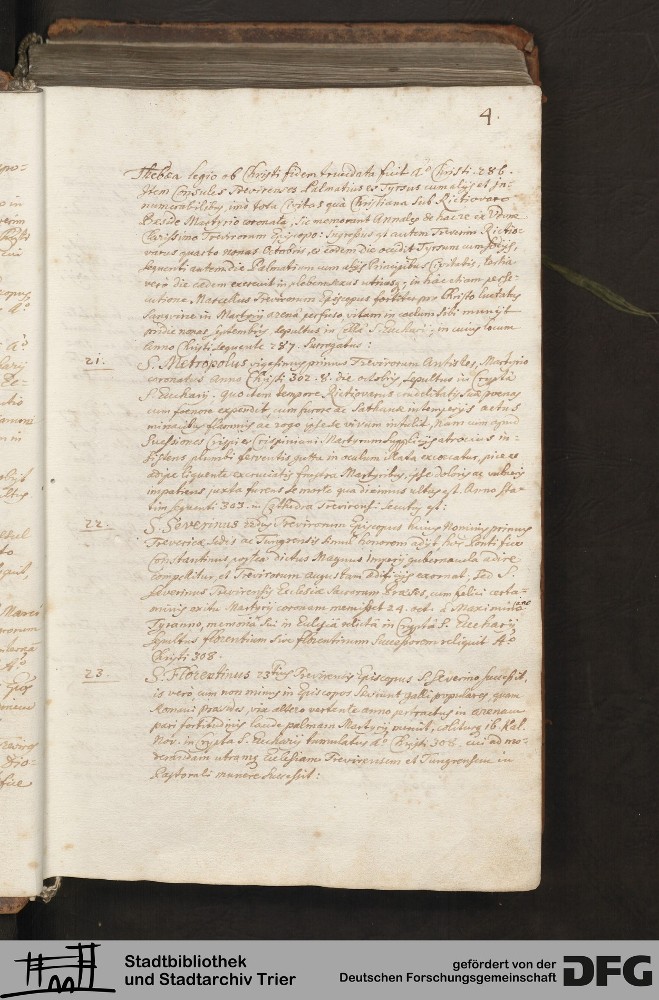 4.
Thebæa legio ob Christi fidem trucidata fuit Aº Christi. 286.
Item Consules Trevirenses Palmatius et Tyrsus cum alijs et in-
numerabilibus, imo tota Civitas quâ Christiana sub Rictiovaro
Præside Martyrio coronata, sic memorant Annales de hac re in
Clarissimo Trevirorum Episcopo: Ingressus est autem Treverim Rictio-
varus quarto nonas Octobris, et eodem die occidit Tyrsum cum socijs,
sequenti autem die Palmatium cum alijs Principibus Civitatis, tertia
vero die cædem exercuit in plebem sexus utriusq; in hac etiam perse-
cutione Marcellus Trevirorum Episcopus fortiter pro Christo luctatus
sanguine in Martyrij arenâ perfuso vitam in cælum sibi munijt
pridie nonas Septembris sepultus in cellâ S. Eucharij, in cuius locum
Anno Christi sequente 287. Surrogatus:
21. S. Metropolus vigesimus primus Trevirorum Antistes, Martyrio
coronatus Anno Christi 302. 8. die octobris, sepultus in Cryptâ
S. Eucharij. quo item tempore Rictiovarus crudelitatis suæ poenas
cum foenore expendit cum furore ac Sathanæ intemperijs actus
minacibus flammis ac rogo ipse se vivum intulit, nam cum apud
Suessiones Crispi et Crispiniani Martyrum supplicijs atrocius in-
sistens plumbi ferventis gutta in oculum illata excæcatur, pice et
adipe liquente excruciatis frustra Martyribus, ipse doloris ac vulneris
impatiens juxta furens se morte qua diximus ultus est. Anno sta-
tim sequenti 303. in Cathedra Trevirensi secutus est:
22. S. Severinus 22dus Trevirorum Episcopus huius Nominis primus
Trevericæ sedis ac Tungrensis simul honorem adijt, hoc Pontifice
Constantinus postea dictus Magnus Imperij gubernacula adire
compellitur, et Trevirorum augustam ædificijs exornat, sed S.
Severinus Trevirensis Ecclesiæ sacrorum Præses, cum felici certa-
minis exitu Martyrij coronam meruisset 24. octob. â Maximino
Tyranno, memoriâ sui in Ecclesiâ relictâ in Cryptâ S. Eucharij
sepultus florentium sive florentinum successorem reliquit Aº
Christi 308.
23. S. Florentinus 23tius Trevirensis Episcopus S. Severino successit,
is vero cum non minus in Episcopos sævirent galli populares, quam
Romani Præsides, vix altero vertente anno pertractus in arenam
pari fortitudinis laude palmam Martyrij meruit, colitur 16. Kal.
Nov. in Crypta S. Eucharij tumulatus Aº Christi 308. cui ad mo-
derandam utramq; Ecclesiam Trevirensem et Tungrensem in
Pastorali munere successit:
Stadtbibliothek
und Stadtarchiv Trier
gefördert von der
Deutschen Forschungsgemeinschaft
DFG